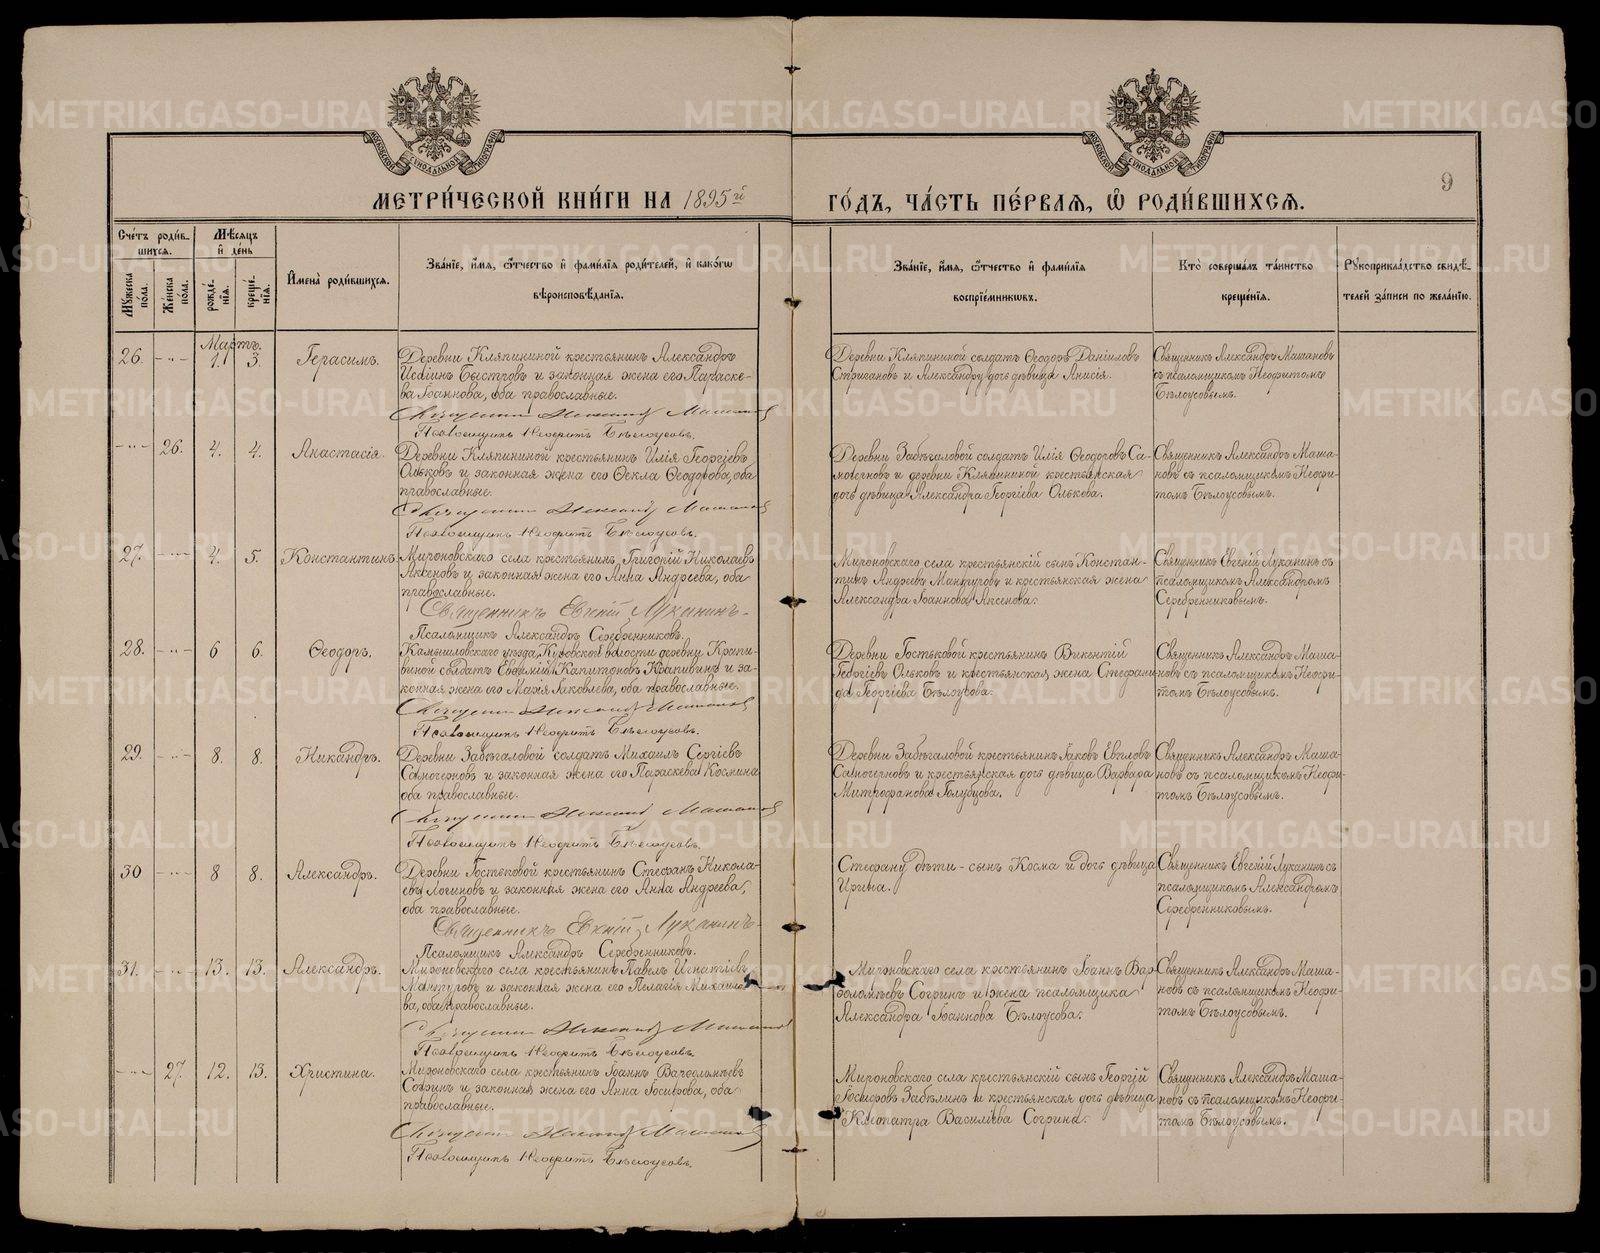 МЕТРИ́ЧЕСКОЙ КНИ́ГИ НА 1895й ГО́ДЪ, ЧА́СТЬ ПЕ́РВАЯ, Ѡ҆ РОДИ́ВШИХСЯ.
9
Сче́тъ роди́в-
шихся.
Мужеска
по́ла.
Же́нска
по́ла.
Мѣ́сяцъ
и҆ де́нь
рожде́-
нїя.
креще́-
нїя.
И҆мена̀ роди́вшихся.
Зва́нїе, и҆́мя, ѻ҆́тчество и҆ фами́лїя роди́телей, и҆ како́гѡ
вѣроисповѣ́данїя.
Зва́нїе, и҆́мя, ѻ҆́тчество и҆ фами́лїя
воспрїе́мникѡвъ.
Кто̀ соверша́лъ та́инство
креще́нїя.
Рꙋкоприкла́дство свидѣ́-
телей за́писи по жела́нїю.
Мартъ.
26. -"- 1. 3. Герасимъ.
Деревни Кляпининой крестьянинъ Александръ
Быстровъ и законная жена его Параске-
ва Іоаннова, оба православные.
Священникъ Александръ Машановъ
Псаломщикъ Неофитъ Бѣлоусовъ.
Деревни Кляпининой солдатъ Ѳеодоръ Даніиловъ
Стригановъ и Александру дочь дѣвица Анисія.
Священникъ Александръ Машановъ
съ псаломщикомъ Неофитомъ
Бѣлоусовымъ.
-"- 26. 4. 4. Анастасія.
Деревни Кляпининой крестьянинъ Илія Георгіевъ
Ольковъ и законная жена его Ѳекла Ѳеодорова, оба
православные.
Священникъ Александръ Машановъ
Псаломщикъ Неофитъ Бѣлоусовъ.
Деревни Забѣгаловой солдатъ Илія Ѳеодоровъ Са-
мочерновъ и деревни Кляпининой крестьянская
дочь дѣвица Александра Георгіева Олькова.
Священникъ Александръ Маша-
новъ съ псаломщикомъ Неофи-
томъ Бѣлоусовымъ.
27. -"- 4. 5. Константинъ.
Мироновскаго села крестьянинъ Григорій Николаевъ
Аксеновъ и законная жена его Анна Андреева, оба
православные.
Священникъ Евгній Луканинъ
Псаломщикъ Александръ Серебренниковъ.
Мироновскаго села крестьянскій сынъ Констан-
тинъ Андреевъ Мантуровъ и крестьянская жена
Александра Іоаннова Аксенова.
Священникъ Евгеній Луканинъ съ
псаломщикомъ Александромъ
Серебренниковымъ.
28. -"- 6 6. Ѳеодоръ.
Камышловскаго уѣзда, волости деревни Крапи-
виной солдатъ Евѳимій Капитоновъ Крапивинъ и за-
конная жена его Марія Іаковлева, оба православные.
Священникъ Александръ Машановъ
Псаломщикъ Неофитъ Бѣлоусовъ.
Деревни Гостьковой крестьянинъ Викентій
Георгіевъ Ольковъ и крестьянская жена Стефани-
да Георгіева Бѣлоусова.
Священникъ Александръ Маша-
новъ съ псаломщикомъ Неофи-
томъ Бѣлоусовымъ.
29. -"- 8. 8. Никандръ.
Деревни Забѣгаловой солдатъ Михаилъ Сергіевъ
Самочерновъ и законная жена его Параскева Космина
оба православные.
Священникъ Александръ Машановъ
Псаломщикъ Неофитъ Бѣлоусовъ.
Деревни Забѣгаловой крестьянинъ Іаковъ Евпловъ
Самочерновъ и крестьянская дочь дѣвица Варвара
Митрофанова Голубцова.
Священникъ Александръ Маша-
новъ съ псаломщикомъ Неофи-
томъ Бѣлоусовымъ.
30 -"- 8 8. Александръ.
Деревни Гостьковой крестьянинъ Стефанъ Никола-
евъ Логиновъ и законная жена его Анна Андреева,
оба православные.
Священникъ Евгній Луканинъ
Псаломщикъ Александръ Серебренниковъ.
Стефану дѣти - сынъ Косма и дочь дѣвица
Ирина.
Священникъ Евгеній Луканинъ съ
псаломщикомъ Александромъ
Серебренниковымъ.
31. -"- 13. 13. Александръ.
Мироновскаго села крестьянинъ Павелъ Игнатіевъ
Мантуровъ и законная жена его Пелагія Михаило-
ва, оба православные.
Священникъ Александръ Машановъ
Псаломщикъ Неофитъ Бѣлоусовъ.
Мироновскаго села крестьянинъ Іоаннъ Вар-
ѳоломѣевъ Согринъ и жена псаломщика
Александра Іоаннова Бѣлоусова.
Священникъ Александръ Маша-
новъ съ псаломщикомъ Неофи-
томъ Бѣлоусовымъ.
-"- 27. 12. 13. Христина.
Мироновскаго села крестьянинъ Іоаннъ Варѳоломѣевъ
Согринъ и законная жена его Анна Іосифова, оба
православные.
Священникъ Александръ Машановъ
Псаломщикъ Неофитъ Бѣлоусовъ.
Мироновскаго села крестьянскій сынъ Георгій
Іосифовъ Забѣлинъ и крестьянская дочь дѣвица
Клеопатра Василіева Согрина.
Священникъ Александръ Маша-
новъ съ псаломщикомъ Неофи-
томъ Бѣлоусовымъ.
METRIKI.GASO-URAL.RU